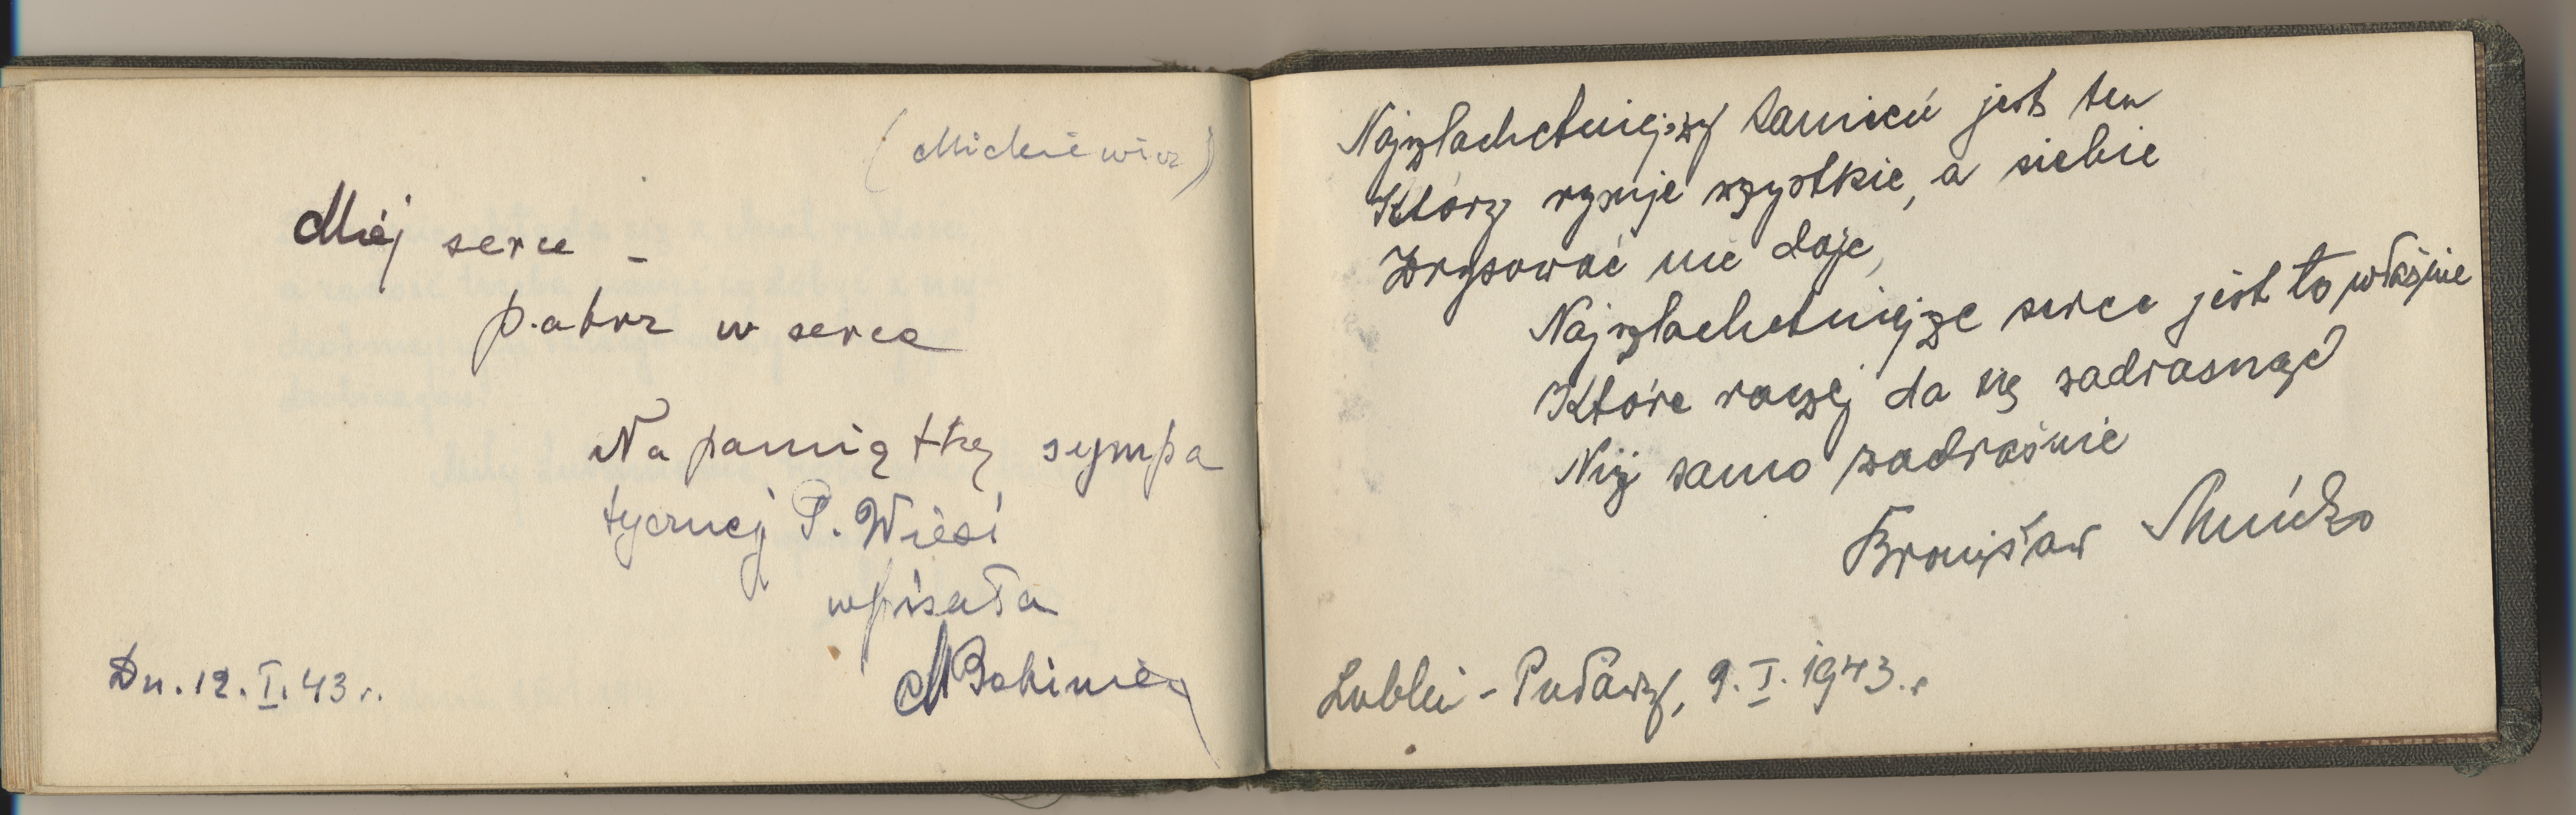 (Mickiewicz)
Miej serce –
patrz w serca
Na pamiątkę sympa
tycznej P. Wiesi
wpisała
Dn. 12. I. 43 r.
Najszlachetniejszy kamień jest ten
Który rysuje wszystkie, a siebie
Zrysować nie daje,
Najszlachetniejsze serce jest to właśnie
Które raczej da się zadrasnąć
Niż samo zadraśnie
Bronisław
Lublin – Puławy, 9. I. 1943. r